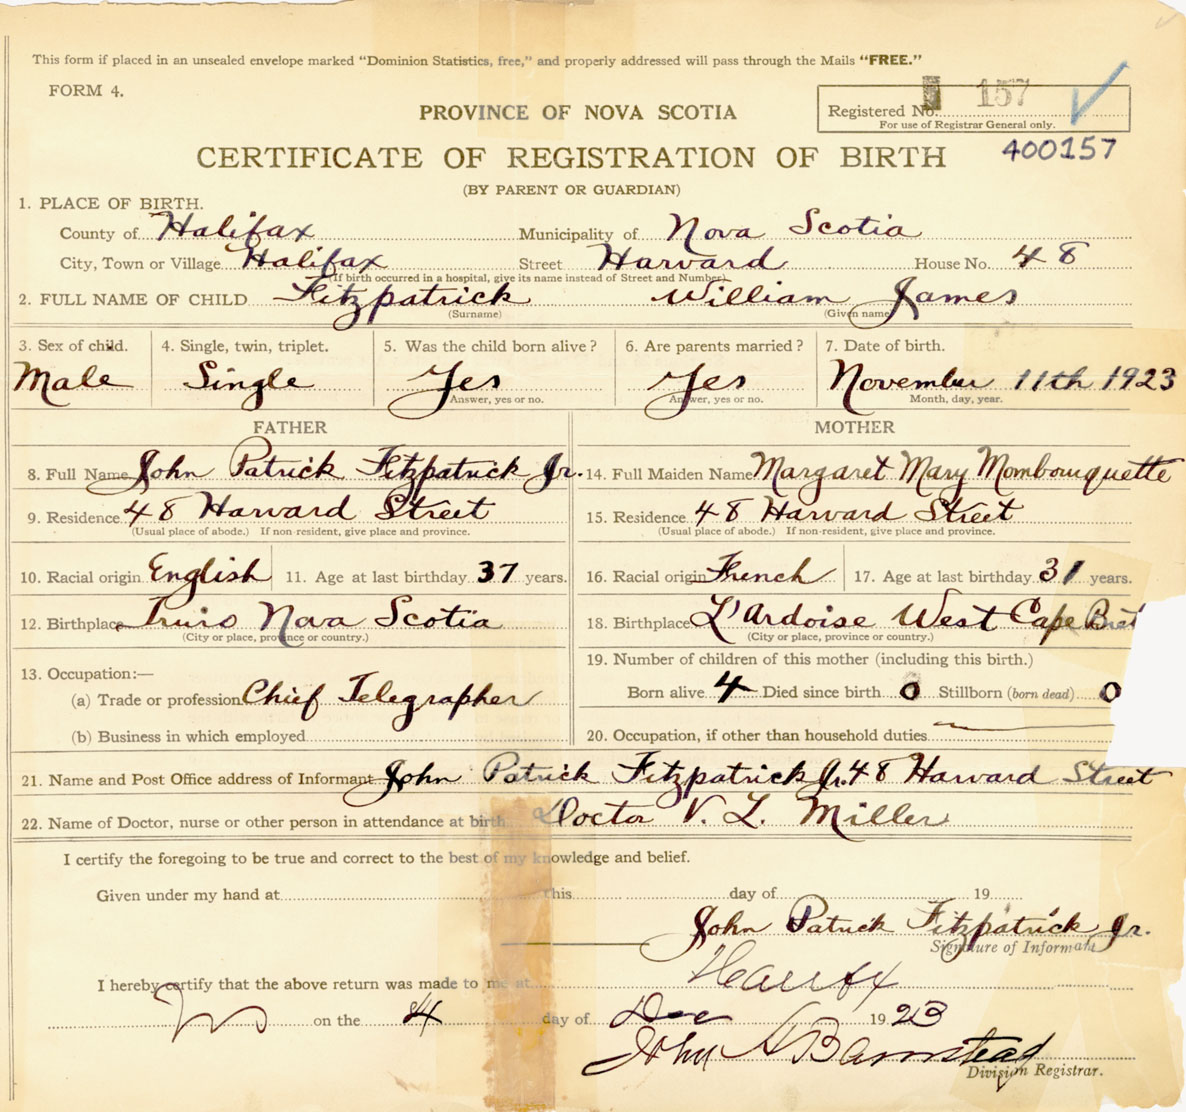 This form if placed in an unsealed envelope marked "Dominion Statistics, free," and properly addressed will pass through the Mails "FREE."
FORM 4.
157
PROVINCE OF NOVA SCOTIA
Registered No.
For use of Registrar General only.
CERTIFICATE OF REGISTRATION OF BIRTH
400157
(BY PARENT OR GUARDIAN)
1. PLACE OF BIRTH.
County of Halifax Municipality of Nova Scotia
City, Town or Village Halifax Street Harvard House No. 48
(If birth occurred in a hospital, give its name instead of Street and Number)
2. FULL NAME OF CHILD Fitzpatrick William James
(Surname) (Given name)
3. Sex of child. 4. Single, twin, triplet. 5. Was the child born alive? 6. Are parents married? 7. Date of birth.
Male Single Yes Yes November 11th 1923
Answer, yes or no. Answer, yes or no. Month, day, year.
FATHER MOTHER
8. Full Name John Patrick Fitzpatrick Jr. 14. Full Maiden Name Margaret Mary Mombourquette
9. Residence 48 Harvard Street 15. Residence 48 Harvard Street
(Usual place of abode.) If non-resident, give place and province. (Usual place of abode.) If non-resident, give place and province.
10. Racial origin English 11. Age at last birthday 37 years. 16. Racial origin French 17. Age at last birthday 31 years.
12. Birthplace Truro Nova Scotia 18. Birthplace L'Ardoise West Cape Bret
(City or place, province or country.) (City or place, province or country.)
19. Number of children of this mother (including this birth.)
13. Occupation:—
(a) Trade or profession Chief Telegrapher Born alive 4 Died since birth 0 Stillborn (born dead) 0
(b) Business in which employed 20. Occupation, if other than household duties
21. Name and Post Office address of Informant John Patrick Fitzpatrick Jr. 48 Harvard Street
22. Name of Doctor, nurse or other person in attendance at birth Doctor V. L. Miller
I certify the foregoing to be true and correct to the best of my knowledge and belief.
Given under my hand at this day of 19
John Patrick Fitzpatrick Jr.
Signature of Informant
I hereby certify that the above return was made to me at Halifax
on the 4 day of Dec 1923
John A Barnstead
Division Registrar.